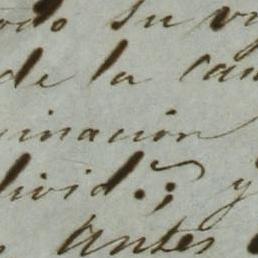 todo su v
de la cau
inacion
divid.; y
antes